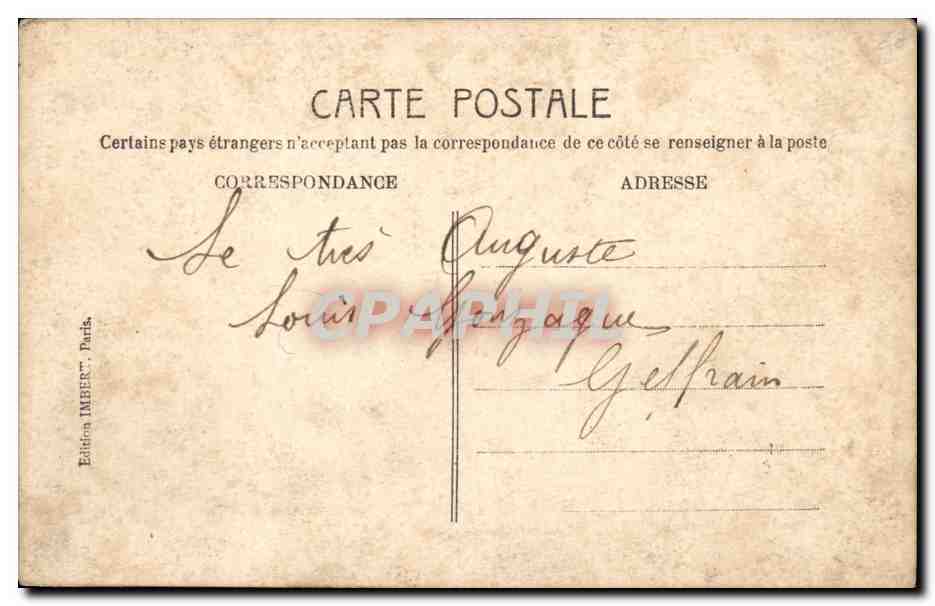 CARTE POSTALE
Certains pays étrangers n'acceptant pas la correspondance de ce côté se renseigner à la poste
CORRESPONDANCE ADRESSE
Le très Auguste
Louis Gonzague
CPAPHIL
Edition IMBERT, Paris.